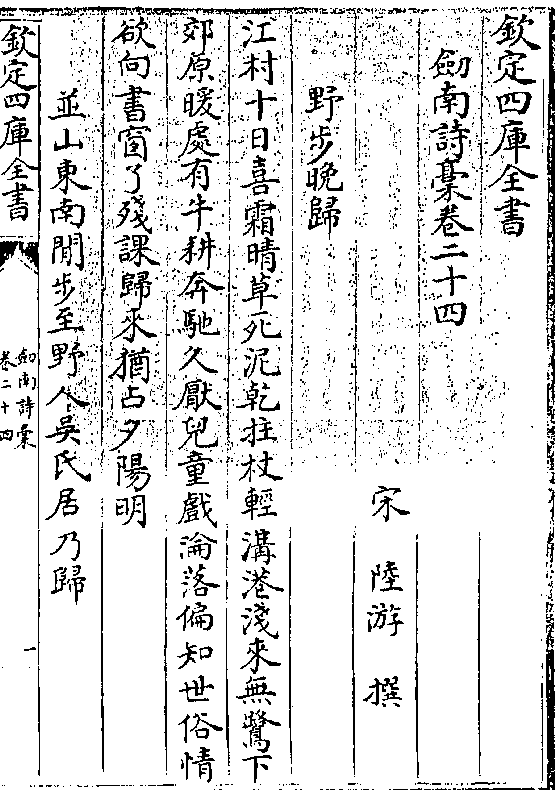 欽定四庫全書
劒南詩稾卷二十四
宋 陸游 撰
野步晚歸
江村十日喜霜晴草死泥乾拄杖輕溝港淺來無鷺下
郊原暖處有牛耕奔馳久厭兒童戲淪落偏知世俗情
欲向書窗了殘課歸來猶占夕陽明
並山東南閒步至野人吳氏居乃歸
欽定四庫全書
劒南詩稾
卷二十四
一